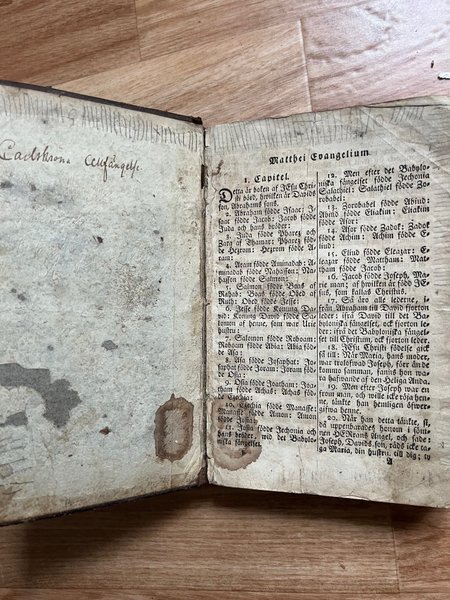 Ladskrona Cellfängelse
Matthei Evangelium.
1. Capitel.
Detta är boken af JEsu Chri-
sti börd, hwilken är Davids
son, Abrahams sons.
2. Abraham födde Isaac: I-
saac födde Jacob: Jacob födde
Juda och hans bröder:
3. Juda födde Pharez och
Zara af Thamar: Pharez föd-
de Hezrom: Hezrom födde A-
ram:
4. Aram födde Aminadab: A-
minadab födde Nahasson: Na-
hasson födde Salmon:
5. Salmon födde Boas af
Rahab: Boas födde Obed af
Ruth: Obed födde Jesse:
6. Jesse födde Konung Da-
vid: Konung David födde Sa-
lomon af henne, som war Urie
hustru:
7. Salomon födde Roboam:
Roboam födde Abia: Abia föd-
de Asa:
8. Asa födde Josaphat: Jo-
saphat födde Joram: Joram föd-
de Osia:
9. Osia födde Joatham: Joa-
tham födde Achas: Achas föd-
de Ezechia:
10. Ezechia födde Manasse:
Manasse födde Amon: Amon
födde Josia:
11. Josia födde Jechonia och
hans bröder, wid det Babylo-
niska fängelset.
12. Men efter det Babylo-
niska fängelset födde Jechonia
Salathiel: Salathiel födde Zo-
robabel:
13. Zorobabel födde Abiud:
Abiud födde Eliakim: Eliakim
födde Asor:
14. Asor födde Zadok: Zadok
födde Achim: Achim födde E-
liud:
15. Eliud födde Eleazar: E-
leazar födde Matthan: Mat-
than födde Jacob:
16. Jacob födde Joseph, Ma-
rie man; af hwilken är född JE-
sus, som kallas Christus.
17. Så äro alle lederne, i-
från Abraham til David fjorton
leder: ifrå David til det Ba-
bylonska fängelset, ock fjorton le-
der: ifrå det Babyloniska fängel-
set til Christum, ock fjorton leder.
18. JEsu Christi födelse gick
så til: När Maria, hans moder,
war trolofwad Joseph, förr än de
komma samman, fanns hon wa-
ra hafwande af den Heliga Anda.
19. Men efter Joseph war en
from man, och wille icke röja hen-
ne, tänkte han hemligen öfwer-
gifwa henne.
20. När han detta tänkte, si,
då uppenbarades honom i söm-
nen HERrans Ängel, och sade:
Joseph, Davids son, räds icke ta-
ga Maria, din hustru, til dig; ty
A